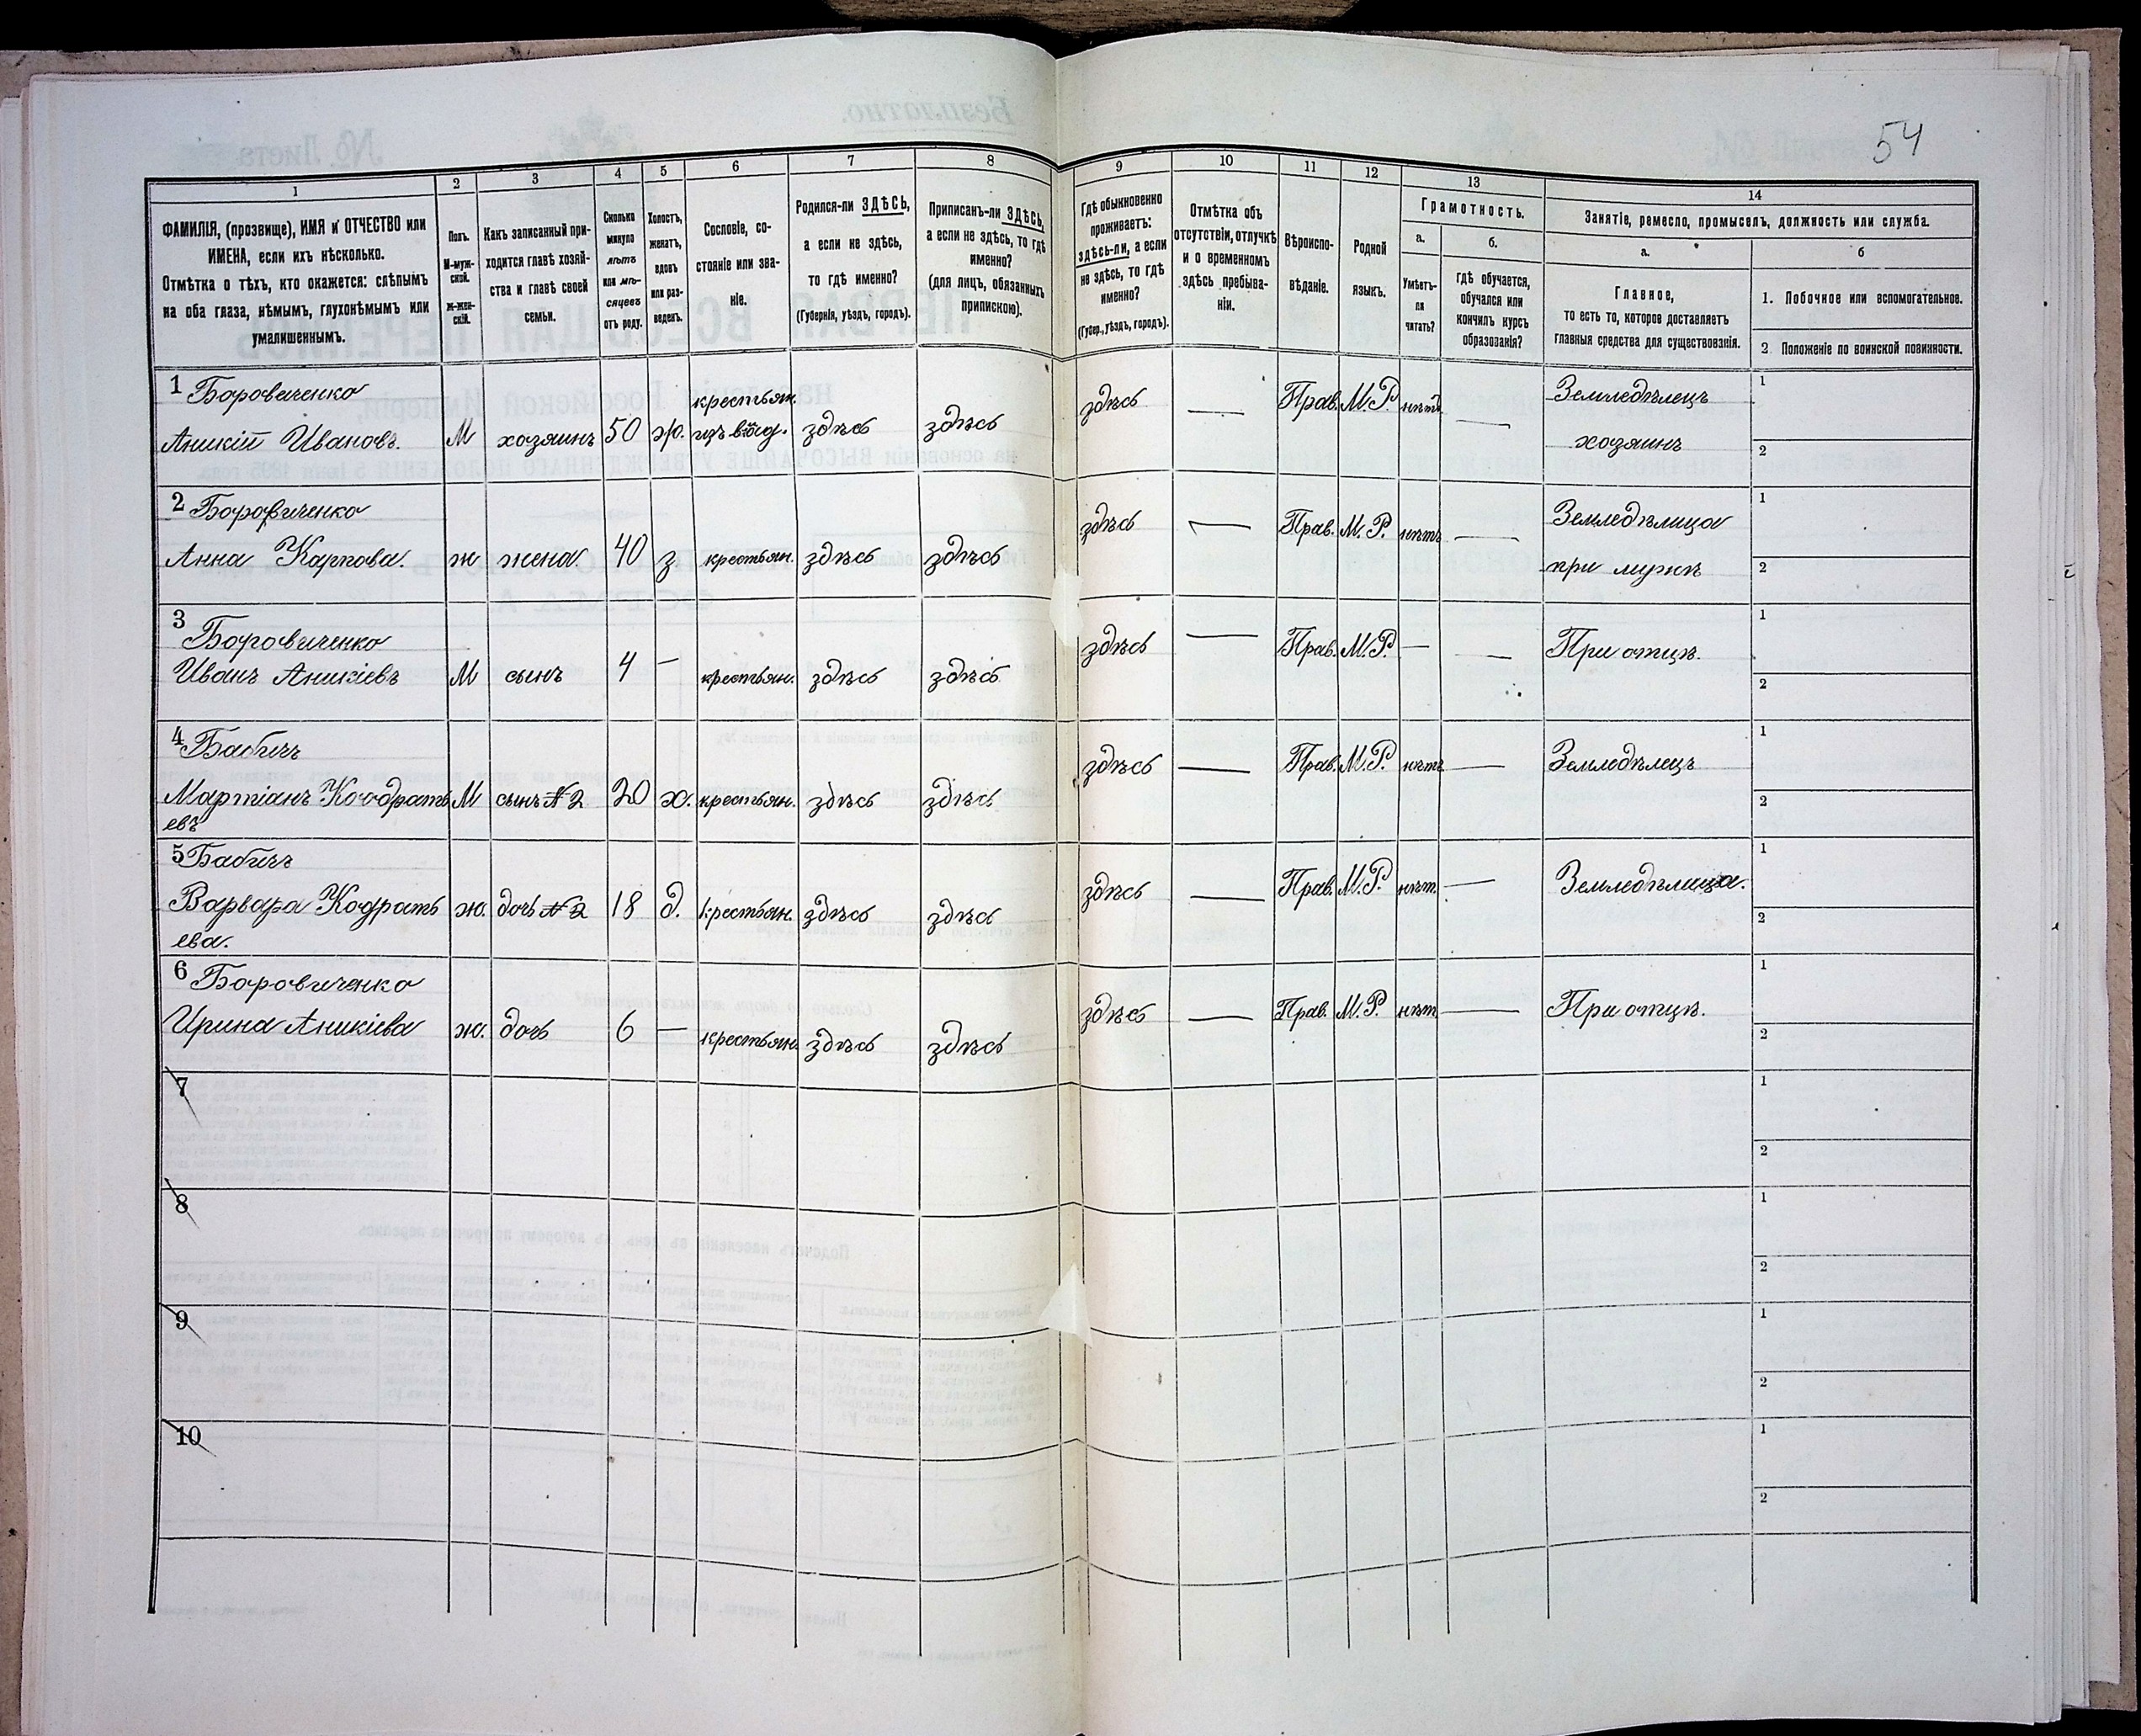 54
1
2
3
4
5
6
7
8
9
10
11
12
13
14
ФАМИЛІЯ, (прозвище), ИМЯ и ОТЧЕСТВО или
ИМЕНА, если ихъ нѣсколько.
Отмѣтка о тѣхъ, кто окажется: слѣпымъ
на оба глаза, нѣмымъ, глухонѣмымъ или
умалишеннымъ.
Полъ.
М-муж-
ской.
ж-жен-
скій.
Какъ записанный при-
ходится главѣ хозяй-
ства и главѣ своей
семьи.
Сколько
минуло
лѣтъ
или мѣ-
сяцевъ
отъ роду.
Холостъ,
женатъ,
вдовъ
или раз-
веденъ.
Сословіе, со-
стояніе или зва-
ніе.
Родился-ли ЗДѢСЬ,
а если не здѣсь,
то гдѣ именно?
(Губернія, уѣздъ, городъ).
Приписанъ-ли ЗДѢСЬ,
а если не здѣсь, то гдѣ
именно?
(для лицъ, обязанныхъ
припискою).
Гдѣ обыкновенно
проживаетъ:
здѣсь-ли, а если
не здѣсь, то гдѣ
именно?
(Губер., уѣздъ, городъ).
Отмѣтка объ
отсутствіи, отлучкѣ
и о временномъ
здѣсь пребыва-
ніи.
Вѣроиспо-
вѣданіе.
Родной
языкъ.
Грамотность.
а.
Умѣетъ-
ли
читать?
б.
Гдѣ обучается,
обучался или
кончилъ курсъ
образованія?
Занятіе, ремесло, промыселъ, должность или служба.
а.
Главное,
то есть то, которое доставляетъ
главныя средства для существованія.
б
1. Побочное или вспомогательное.
2 Положеніе по воинской повинности.
1 Боровиченко
Аникій Ивановъ. М хозяинъ 50 ж. крестьян. здѣсь здѣсь здѣсь — Прав. М.Р. нѣтъ — Земледѣлецъ
хозяинъ
1
2
2 Боровиченко
Анна Карпова. ж жена. 40 з крестьян. здѣсь здѣсь здѣсь — Прав. М.Р. нѣтъ — Земледѣлица
при мужѣ
1
2
3 Боровиченко
Иванъ Аникіевъ М сынъ 4 — крестьян. здѣсь здѣсь здѣсь — Прав. М.Р. — — При отцѣ.
1
2
4 Бабичъ
Мартіанъ Кондрать М сынъ №2 20 х. крестьян. здѣсь здѣсь здѣсь — Прав. М.Р. нѣтъ — Земледѣлецъ
евъ
1
2
5 Бабичъ
Варвара Кодрать ж. дочь №2 18 д. крестьян. здѣсь здѣсь здѣсь — Прав. М.Р. нѣт. — Земледѣлица.
ева.
1
2
6 Боровиченко
Ирина Аникіева ж. дочь 6 — крестьян. здѣсь здѣсь здѣсь — Прав. М.Р. нѣт — При отцѣ.
1
2
7
1
2
8
1
2
9
1
2
10
1
2